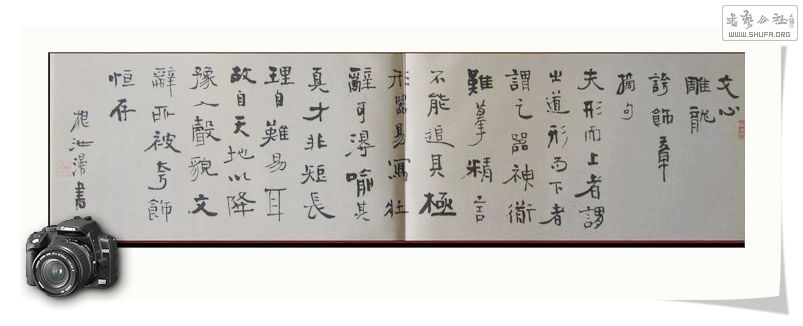 書藝公社
WWW.SHUFA.ORG
文心
雕龍
誇飾章
摘句
夫形而上者謂
之道形而下者
謂之器神衜
難摹精言
不能追其極
形器易寫壯
辭可得喻其
真才非短長
理自難易耳
故自天地以降
豫入聲貌文
辭所被夸飾
恒存
書
Canon
EOS